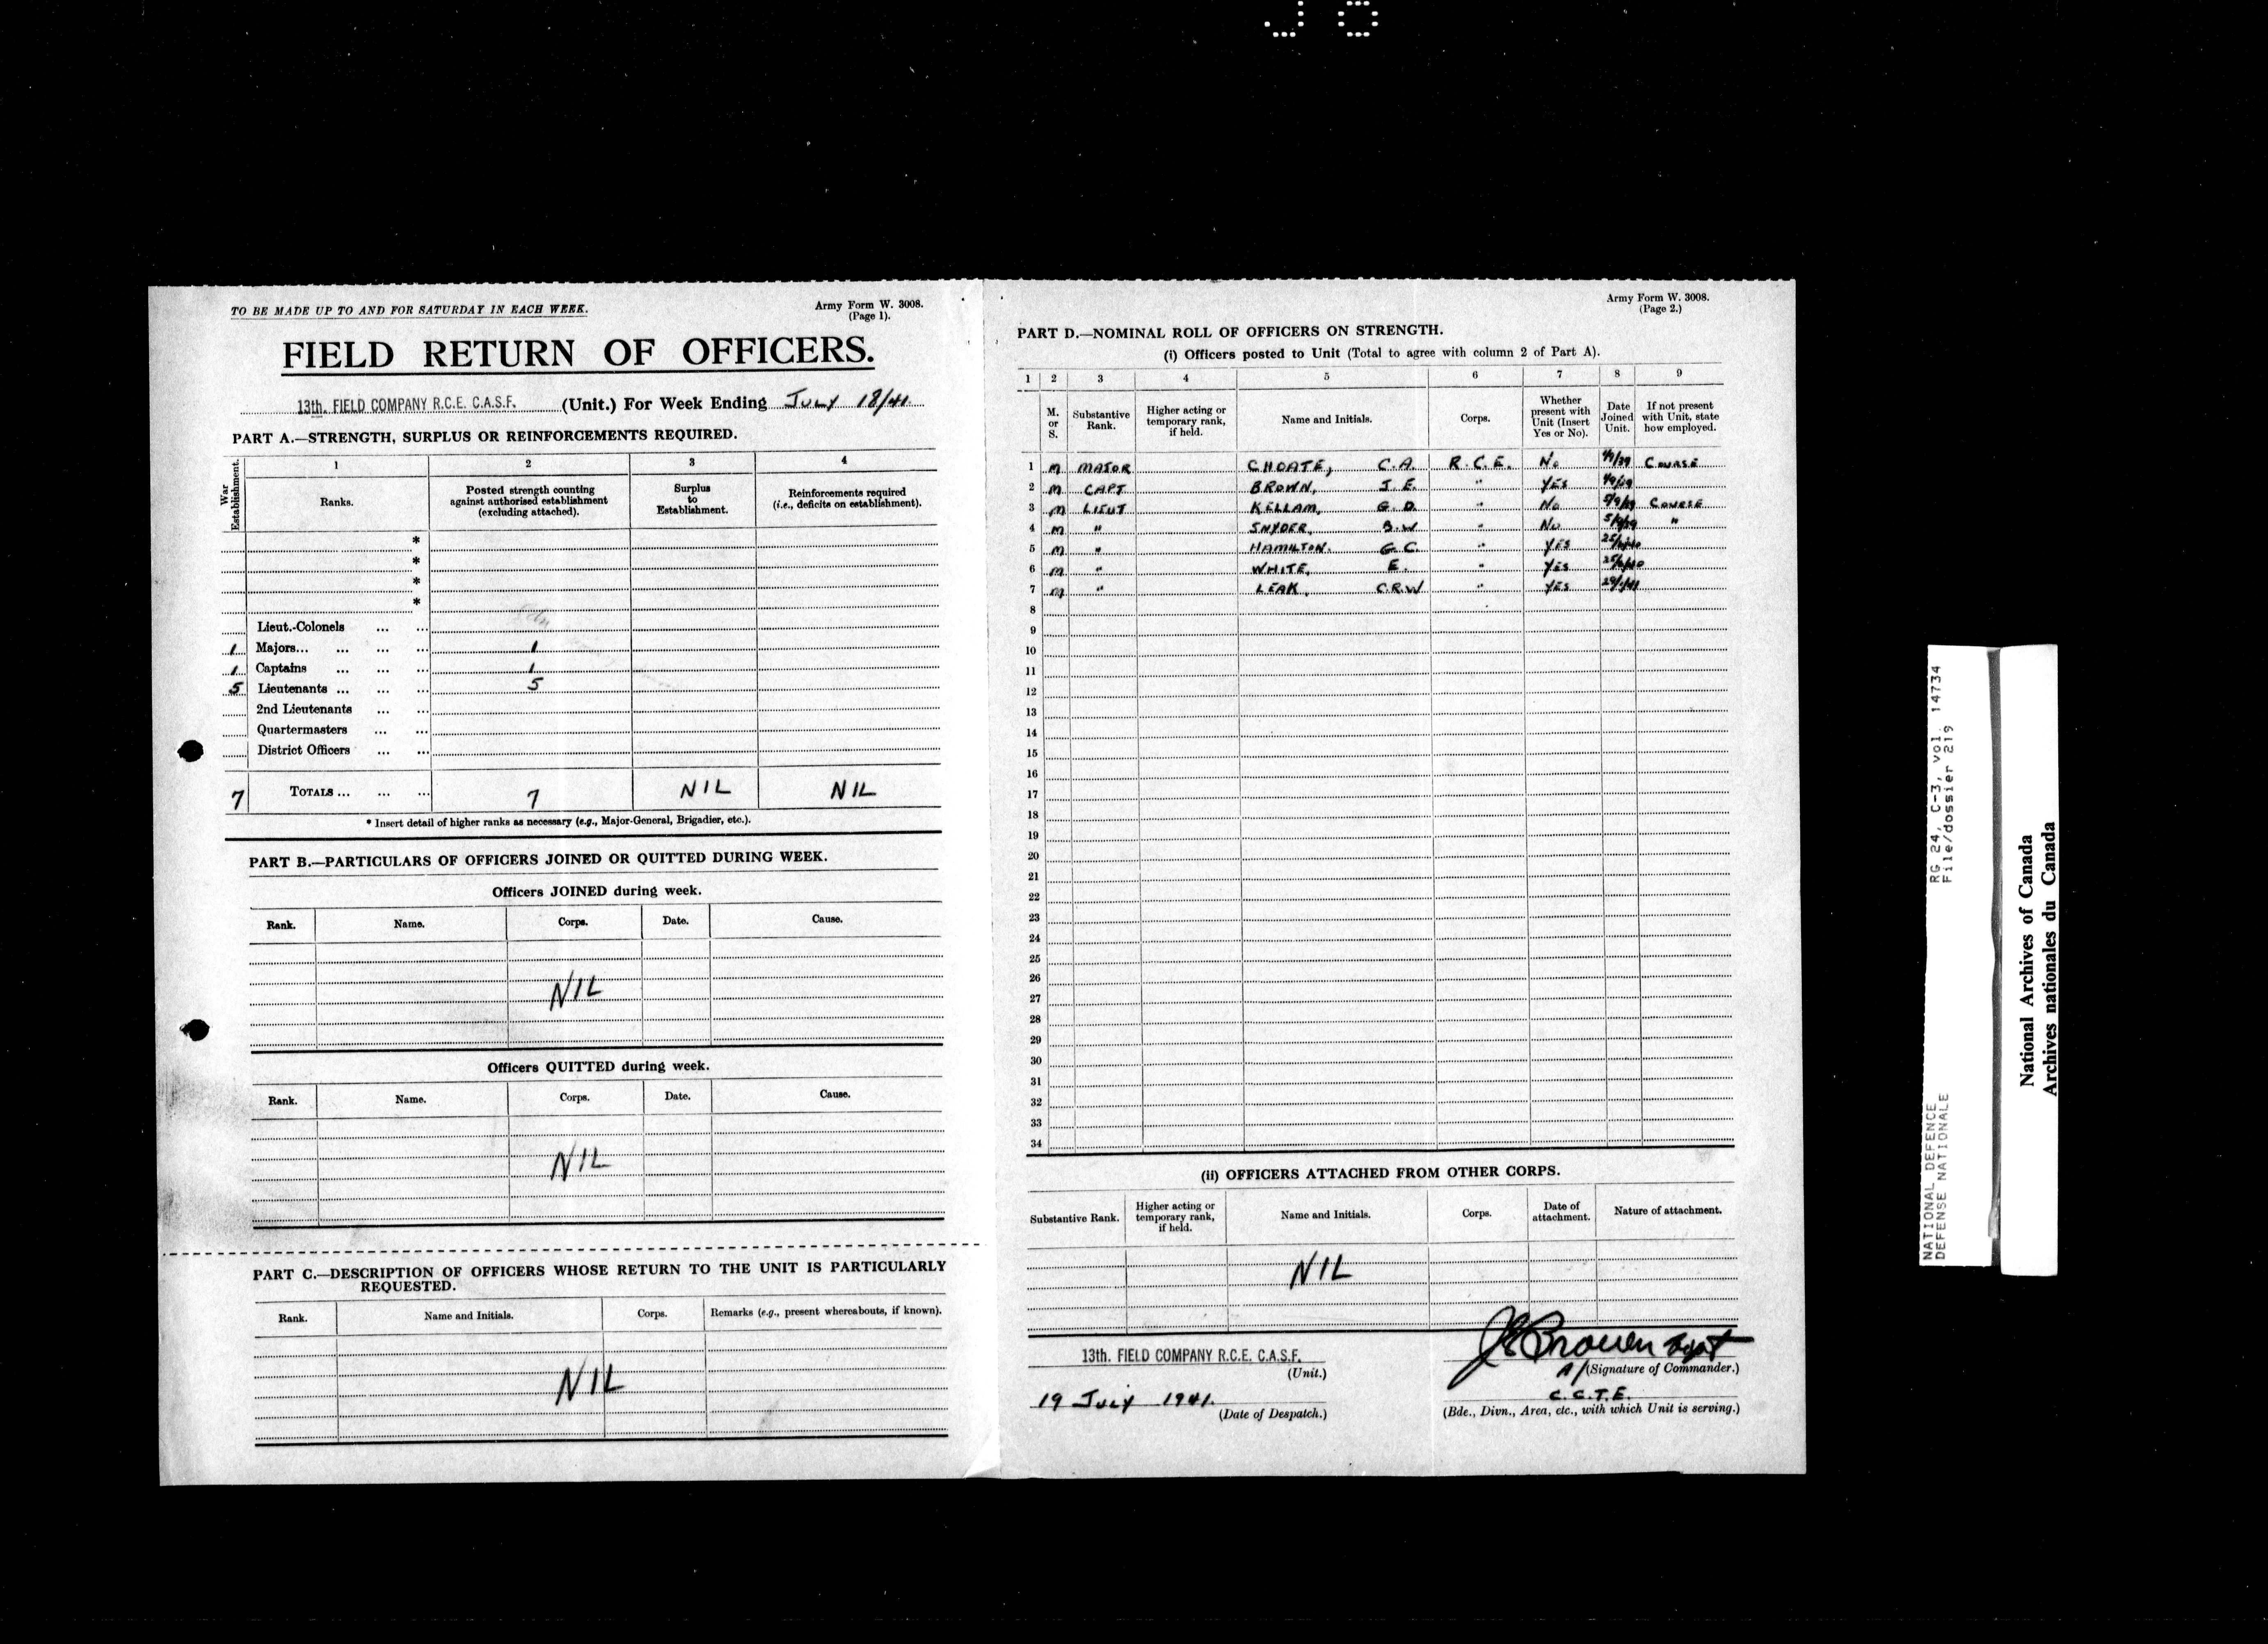 TO BE MADE UP TO AND FOR SATURDAY IN EACH WEEK.
Army Form W. 3008.
(Page 1).
FIELD RETURN OF OFFICERS.
13th. FIELD COMPANY R.C.E. C.A.S.F. (Unit.) For Week Ending JULY 18/41.
PART A.—STRENGTH, SURPLUS OR REINFORCEMENTS REQUIRED.
War Establishment.
1 2 3 4
Ranks.
Posted strength counting against authorised establishment (excluding attached).
Surplus to Establishment.
Reinforcements required (i.e., deficits on establishment).
*
*
*
*
Lieut.-Colonels ... ...
1 Majors... ... ... ... 1
1 Captains ... ... ... 1
5 Lieutenants ... ... ... 5
2nd Lieutenants ... ...
Quartermasters ... ...
District Officers ... ...
7 TOTALS ... ... ... 7 NIL NIL
* Insert detail of higher ranks as necessary (e.g., Major-General, Brigadier, etc.).
PART B.—PARTICULARS OF OFFICERS JOINED OR QUITTED DURING WEEK.
Officers JOINED during week.
Rank. Name. Corps. Date. Cause.
NIL
Officers QUITTED during week.
Rank. Name. Corps. Date. Cause.
NIL
PART C.—DESCRIPTION OF OFFICERS WHOSE RETURN TO THE UNIT IS PARTICULARLY
REQUESTED.
Rank. Name and Initials. Corps. Remarks (e.g., present whereabouts, if known).
NIL
Army Form W. 3008.
(Page 2.)
PART D.—NOMINAL ROLL OF OFFICERS ON STRENGTH.
(i) Officers posted to Unit (Total to agree with column 2 of Part A).
1 2 3 4 5 6 7 8 9
M. or S.
Substantive Rank.
Higher acting or temporary rank, if held.
Name and Initials.
Corps.
Whether present with Unit (Insert Yes or No).
Date Joined Unit.
If not present with Unit, state how employed.
1 M MAJOR CHOATE, C.A. R.C.E. No COURSE
2 M CAPT BROWN, J.E. " YES
3 M LIEUT KELLAM, G.D. " No 5/9/39 COURSE
4 M " SNYDER, B.W " No 5/9/39 "
5 M " HAMILTON. G.C. " YES
6 M " WHITE, E. " YES
7 M " LEAK, C.R.W " YES
8
9
10
11
12
13
14
15
16
17
18
19
20
21
22
23
24
25
26
27
28
29
30
31
32
33
34
(ii) OFFICERS ATTACHED FROM OTHER CORPS.
Substantive Rank.
Higher acting or temporary rank, if held.
Name and Initials.
Corps.
Date of attachment.
Nature of attachment.
NIL
13th. FIELD COMPANY R.C.E. C.A.S.F.
(Unit.)
19 JULY 1941.
(Date of Despatch.)
JEBrown Capt
A/(Signature of Commander.)
C.C.T.E.
(Bde., Divn., Area, etc., with which Unit is serving.)
NATIONAL DEFENCE RG 24, C-3, vol. 14734
DEFENSE NATIONALE File/dossier 219
National Archives of Canada
Archives nationales du Canada